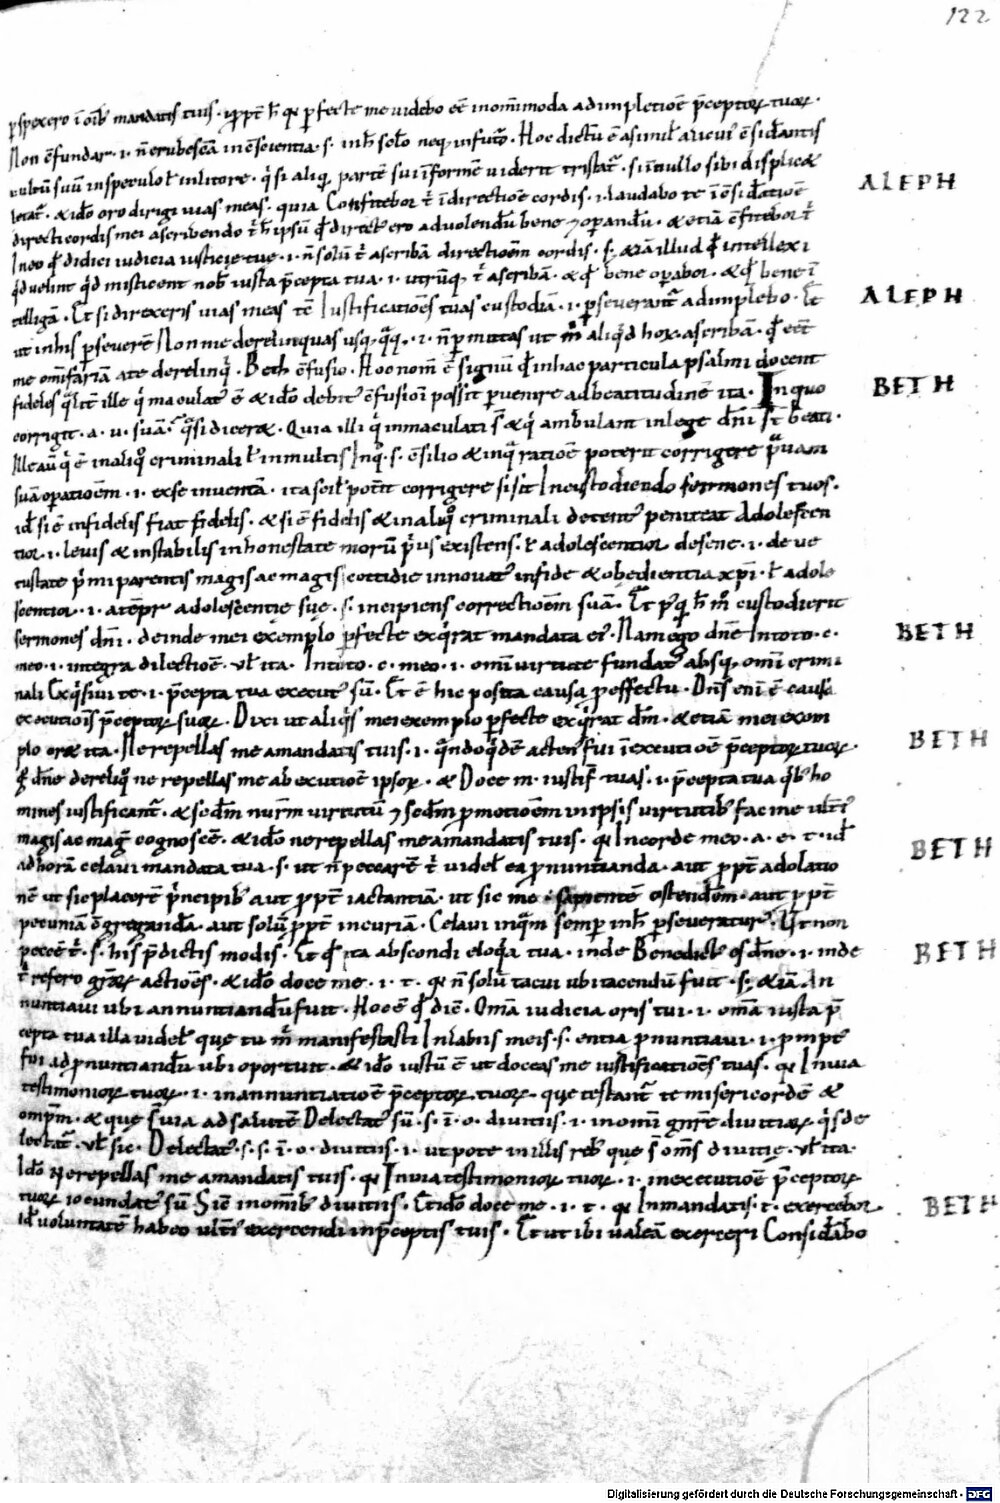 122
perspexero ī oīb; mandatis tuis · ꝓpt̄ h̄ qđ perfecte me videbo eē in om̄imoda adimpletiōē p̄ceptoꝝ tuoꝝ ·
Non c̄fundar · i · n̄ erubescā in c̄scientia · s · in h̄ sc̄lo neq; in futuro · Hoc dictū ē a simil̄ alicui; c̄siderantis
vultū suū in speculo ł in litore · q̄ si aliq̄ partē sui informē viderit tristat̄ · si in nullo sibi displicet
letat̄ · & ido oro dirigi vias meas · quia Confitebor t̄ i directiōē cordis · i · laudabo te ī c̄sideratiōē
ALEPH
directi cordis mei ascribendo t̄ h̄ ipsū qđ direct; ero ad volendū bene & operandū · & etiā c̄fitebor t̄
In eo qđ didici iudicia iusticie tue · i · n̄ solū t̄ ascribā directiōem cordis · s; & iā illud qđ intellexi
qđ velint qđ misticent nob̄ iusta p̄cepta tua · i · utrūq; t̄ ascribā · & qđ bene operabor · & qđ bene ī
telligā · Et si direxeris vias meas tē Iustificatiōēs tuas custodiā · i · perseverant̄ adimplebo · Et
ALEPH
ut in his perseverē Non me derelinquas usq; q̄q; · i · n̄ permittas ut m̄ aliqđ hoꝝ ascribā · qđ eēt
me om̄ifariā a te derelinq̄ · Beth c̄fusio · Hoc nom̄ ē signū qđ in hac particula psalmi docent
fideles q̄lit̄ ille q̄ maculat; ē & ido debit; c̄fusioni possit pervenire ad beatitudinē ita · In quo
BETH
corrigit · a · v · suā · q̄si diceret · Quia illi q̄ inmaculati s̄ & q̄ ambulant in lege dn̄i st̄ beati ·
Ille aū q̄ ē in aliquo criminali ł in multis In q̄ · s · c̄silio & in q̄ ratiōē poterit corrigere p̄vam
suā operatiōem · i · ex se inventā · ita scil̄ pot̄it corrigere si sit In custodiendo sermones tuos ·
id̄ si ē infidelis fiat fidelis · & si ē fidelis & in aliquo criminali detent; peniteat Adolescen
tior · i · levis & instabilis in honestate morū p̄us existens · ł adolescentior desenc · i · de ve
tustate p̄mi parentis magis ac magis cottidie innovat; in fide & obedientia xp̄i · ł adole
scentior · i · a tēpr̄ adolescentie sue · s · incipiens correctiōem suā · Et p̄q̄ h̄ m̄ custodierit
sermones dn̄i · deinde mei exemplo perfecte exq̄rat mandata ei; · Nam ego dn̄e In toto · c ·
BETH
meo · i · integra dilectiōē · vł ita · In toto · c · meo · i · om̄i virtute fundat; absq; om̄i crimi
nali Exq̄sivi te · i · p̄cepta tua execut; sū · Et ē hic posita causa ꝓ effectu · Dn̄s eni ē causa
executiōis p̄ceptoꝝ suoꝝ · Dixi ut aliq̄s mei exemplo perfecte exq̄rat dm̄ · & etiā mei exem
plo oret ita · Ne repellas me a mandatis tuis · i · q̄ndoqđē acten; fui ī executiōē p̄ceptoꝝ tuoꝝ ·
BETH
dn̄e dereliq̄ ne repellas me ab ecutiōē ipsoꝝ · & Doce m · iustif̄ tuas · i · p̄cepta tua q̄b; ho
mines iustificant̄ · & scdm̄ num̄ virtutū & scdm̄ ꝓmotiōem in ipsis virtutib; fac me ult̄i
magis ac mag̉ cognoscē · & ido ne repellas me a mandatis tuis · qđ In corde meo · a · e · t · id̄
BETH
ad horā celavi mandata tua · s · ut n̄ peccarē t̄ videł ea ꝓnuntianda · aut ꝓpt̄ adolatio
nē ut sic placerē p̄ncipib; aut ꝓpt̄ iactantiā · ut sic me sapientē ostenderem · aut ꝓpt̄
pecuniā c̄greganda · aut solū ꝓpt̄ incuriā · Celavi inq̄m semꝑ in h̄ perseveratur; · Ut non
peccē t̄ · s · his p̄dictis modis · Et qđ ita abscondi eloq̄a tua · inde Benedict; es dn̄e · i · inde
BETH
t̄ refero gr̄aꝝ actiōēs · & ido doce me · i · t · qđ n̄ solū tacui ubi tacendū fuit · s; & iā An
nuntiavi ubi annuntiandū fuit · Hoc ē qđ diē · Om̄a iudicia oris tui · i · om̄a iusta p̄
cepta tua illa videł que tu m̄ manifestasti In labiis meis · s · entia ꝓnuntiavi · i · ꝓmpt;
fui ad ꝓnuntiandū ubi oportuit · & ido iustū ē ut doceas me iustificatiōēs tuas · qđ In via
testimonioꝝ tuoꝝ · i · in annuntiatiōē p̄ceptoꝝ tuoꝝ · que testant̄ te misericordē &
omp̄m · & que s̄ via ad salutē Delectat; sū · s · ī · o · divitiis · i · in omni gn̄re divitiaꝝ q̄si de
lectat̄ · vł sic · Delectat; · s · s · ī · o · divitiis · i · ut pote in illis reb; que s̄ oms̄ divitie · vł ita ·
Ido Ne repellas me a mandatis tuis · qđ In via testimonioꝝ tuoꝝ · i · in executiōē p̄ceptoꝝ
tuoꝝ iocundat; sū Sic in omib; divitiis · Et ido doce me · i · t · qđ In mandatis · t · exercebor
BETH
id̄ voluntatē habeo ult̄i exercendi in p̄ceptis tuis · Et ut ibi valeā exerceri Considerabo
Digitalisierung gefördert durch die Deutsche Forschungsgemeinschaft - DFG